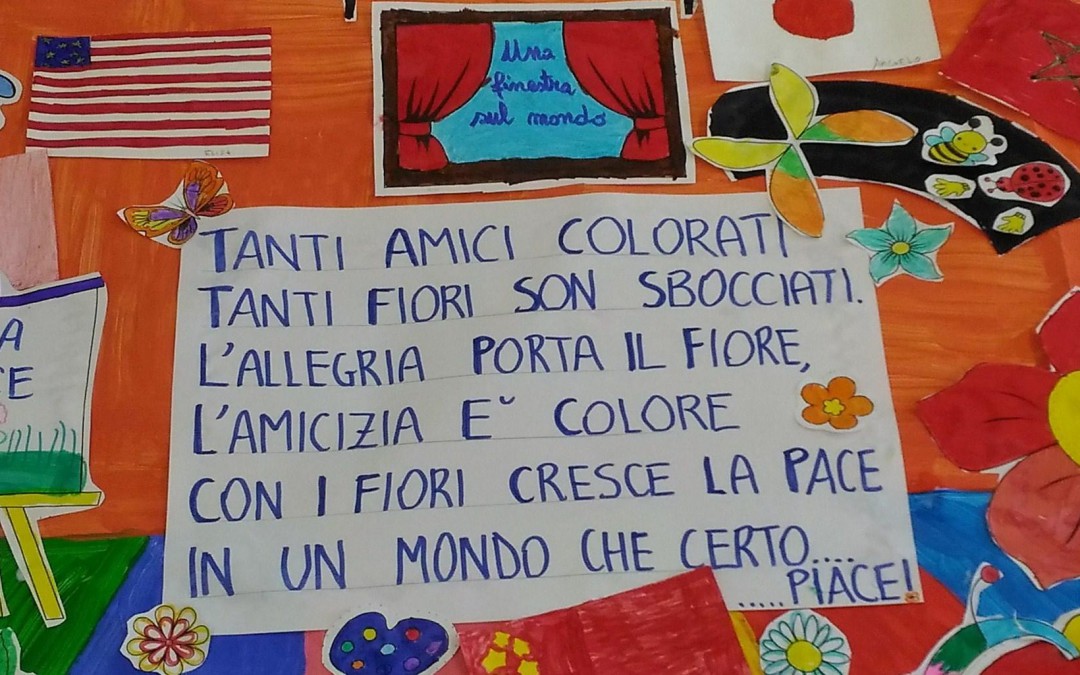 Una
finestra
sul mondo
ELISA
TANTI AMICI COLORATI
TANTI FIORI SON SBOCCIATI.
L'ALLEGRIA PORTA IL FIORE,
L'AMICIZIA E` COLORE
CON I FIORI CRESCE LA PACE
IN UN MONDO CHE CERTO....
.....PIACE!